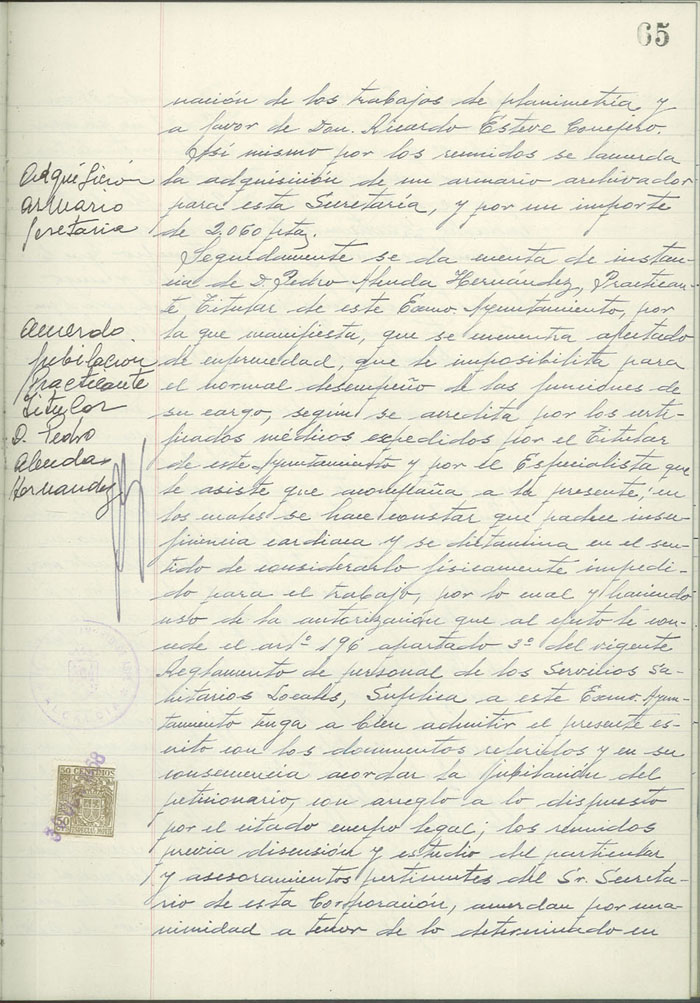 65
nación de los trabajos de planimetría y
a favor de Don. Ricardo Esteve Conejero.
Así mismo por los reunidos se acuerda
la adquisición de un armario archivador
para esta Secretaría, y por un importe
de 2.060 ptas.
Adquisición
armario
Secretaria
Seguidamente se da cuenta de instan-
cia de D. Pedro Alenda Hernández, Practican-
te, Titular de este Excmo Ayuntamiento, por
la que manifiesta, que se encuentra afectado
de enfermedad, que le imposibilita para
el normal desempeño de las funciones de
su cargo, según se acredita por los certi-
ficados médicos expedidos por el Titular
de este Ayuntamiento y por el Especialista que
le asiste que acompaña a la presente; en
los cuales se hace constar que padece insu-
ficiencia cardiaca y se dictamina en el sen-
tido de considerarlo físicamente impedi-
do para el trabajo, por lo cual y haciendo
uso de la autorización que al efecto le con-
cede el artº 196 apartado 3º del vigente
Reglamento de personal de los Servicios Sa-
nitarios Locales, Suplica a este Excmo. Ayun-
tamiento tenga a bien admitir el presente es-
crito con los documentos referidos y en su
consecuencia acordar la Jubilación del
peticionario, con arreglo a lo dispuesto
por el citado cuerpo legal; los reunidos
previa discusión y estudio del particular
y asesoramientos pertinentes del Sr. Secreta-
rio de esta Corporación, acuerdan por una-
nimidad a tenor de lo determinado en
acuerdo
jubilación
practicante
Titular
D. Pedro
Alenda
Hernandez
ALCALDIA
50 CENTIMOS
50
ESPECIAL MOVIL